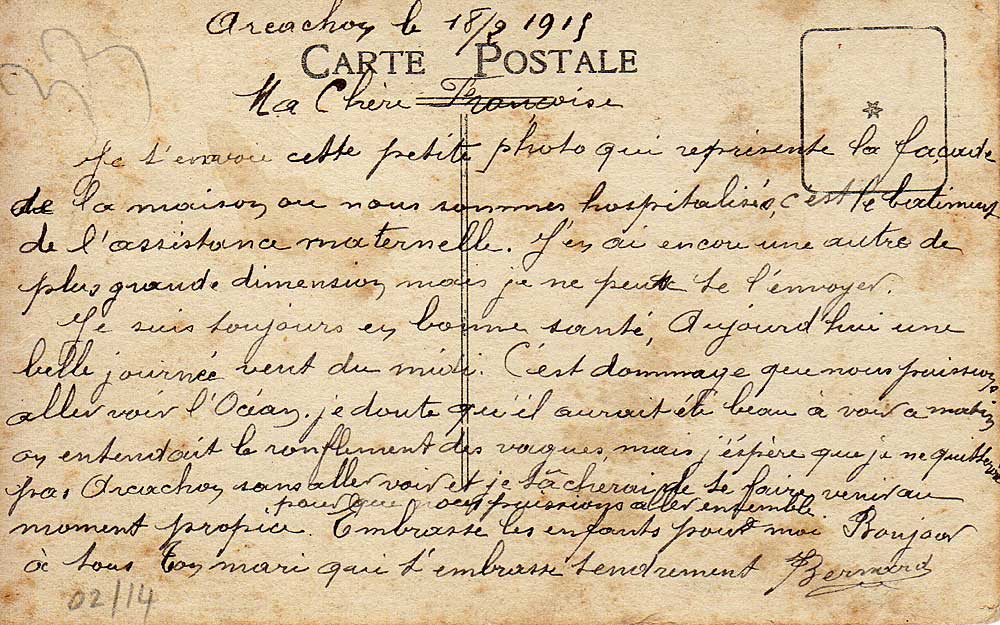 33
Arcachon le 18/9 1915
CARTE POSTALE
Ma Chère Françoise
Je t'envoie cette petite photo qui représente la façade
de la maison ou nous sommes hospitalisés, c'est le batiment
de l'assistance maternelle. J'en ai encore une autre de
plus grande dimension mais je ne peux te l'envoyer.
Je suis toujours en bonne santé, Aujourd'hui une
belle journée vent du midi. C'est dommage que nous puissions
aller voir l'Océan, je doute qu'il aurait été beau à voir ce matin
on entendait le ronflement des vagues, mais j'éspère que je ne quitterai
pas Arcachon sans aller voir et je tâcherai de te faire venir au
pour que nous puissions aller ensemble.
moment propice. Embrasse les enfants pour moi Bonjour
à tous Ton mari qui t'embrasse tendrement Bernard
02/14